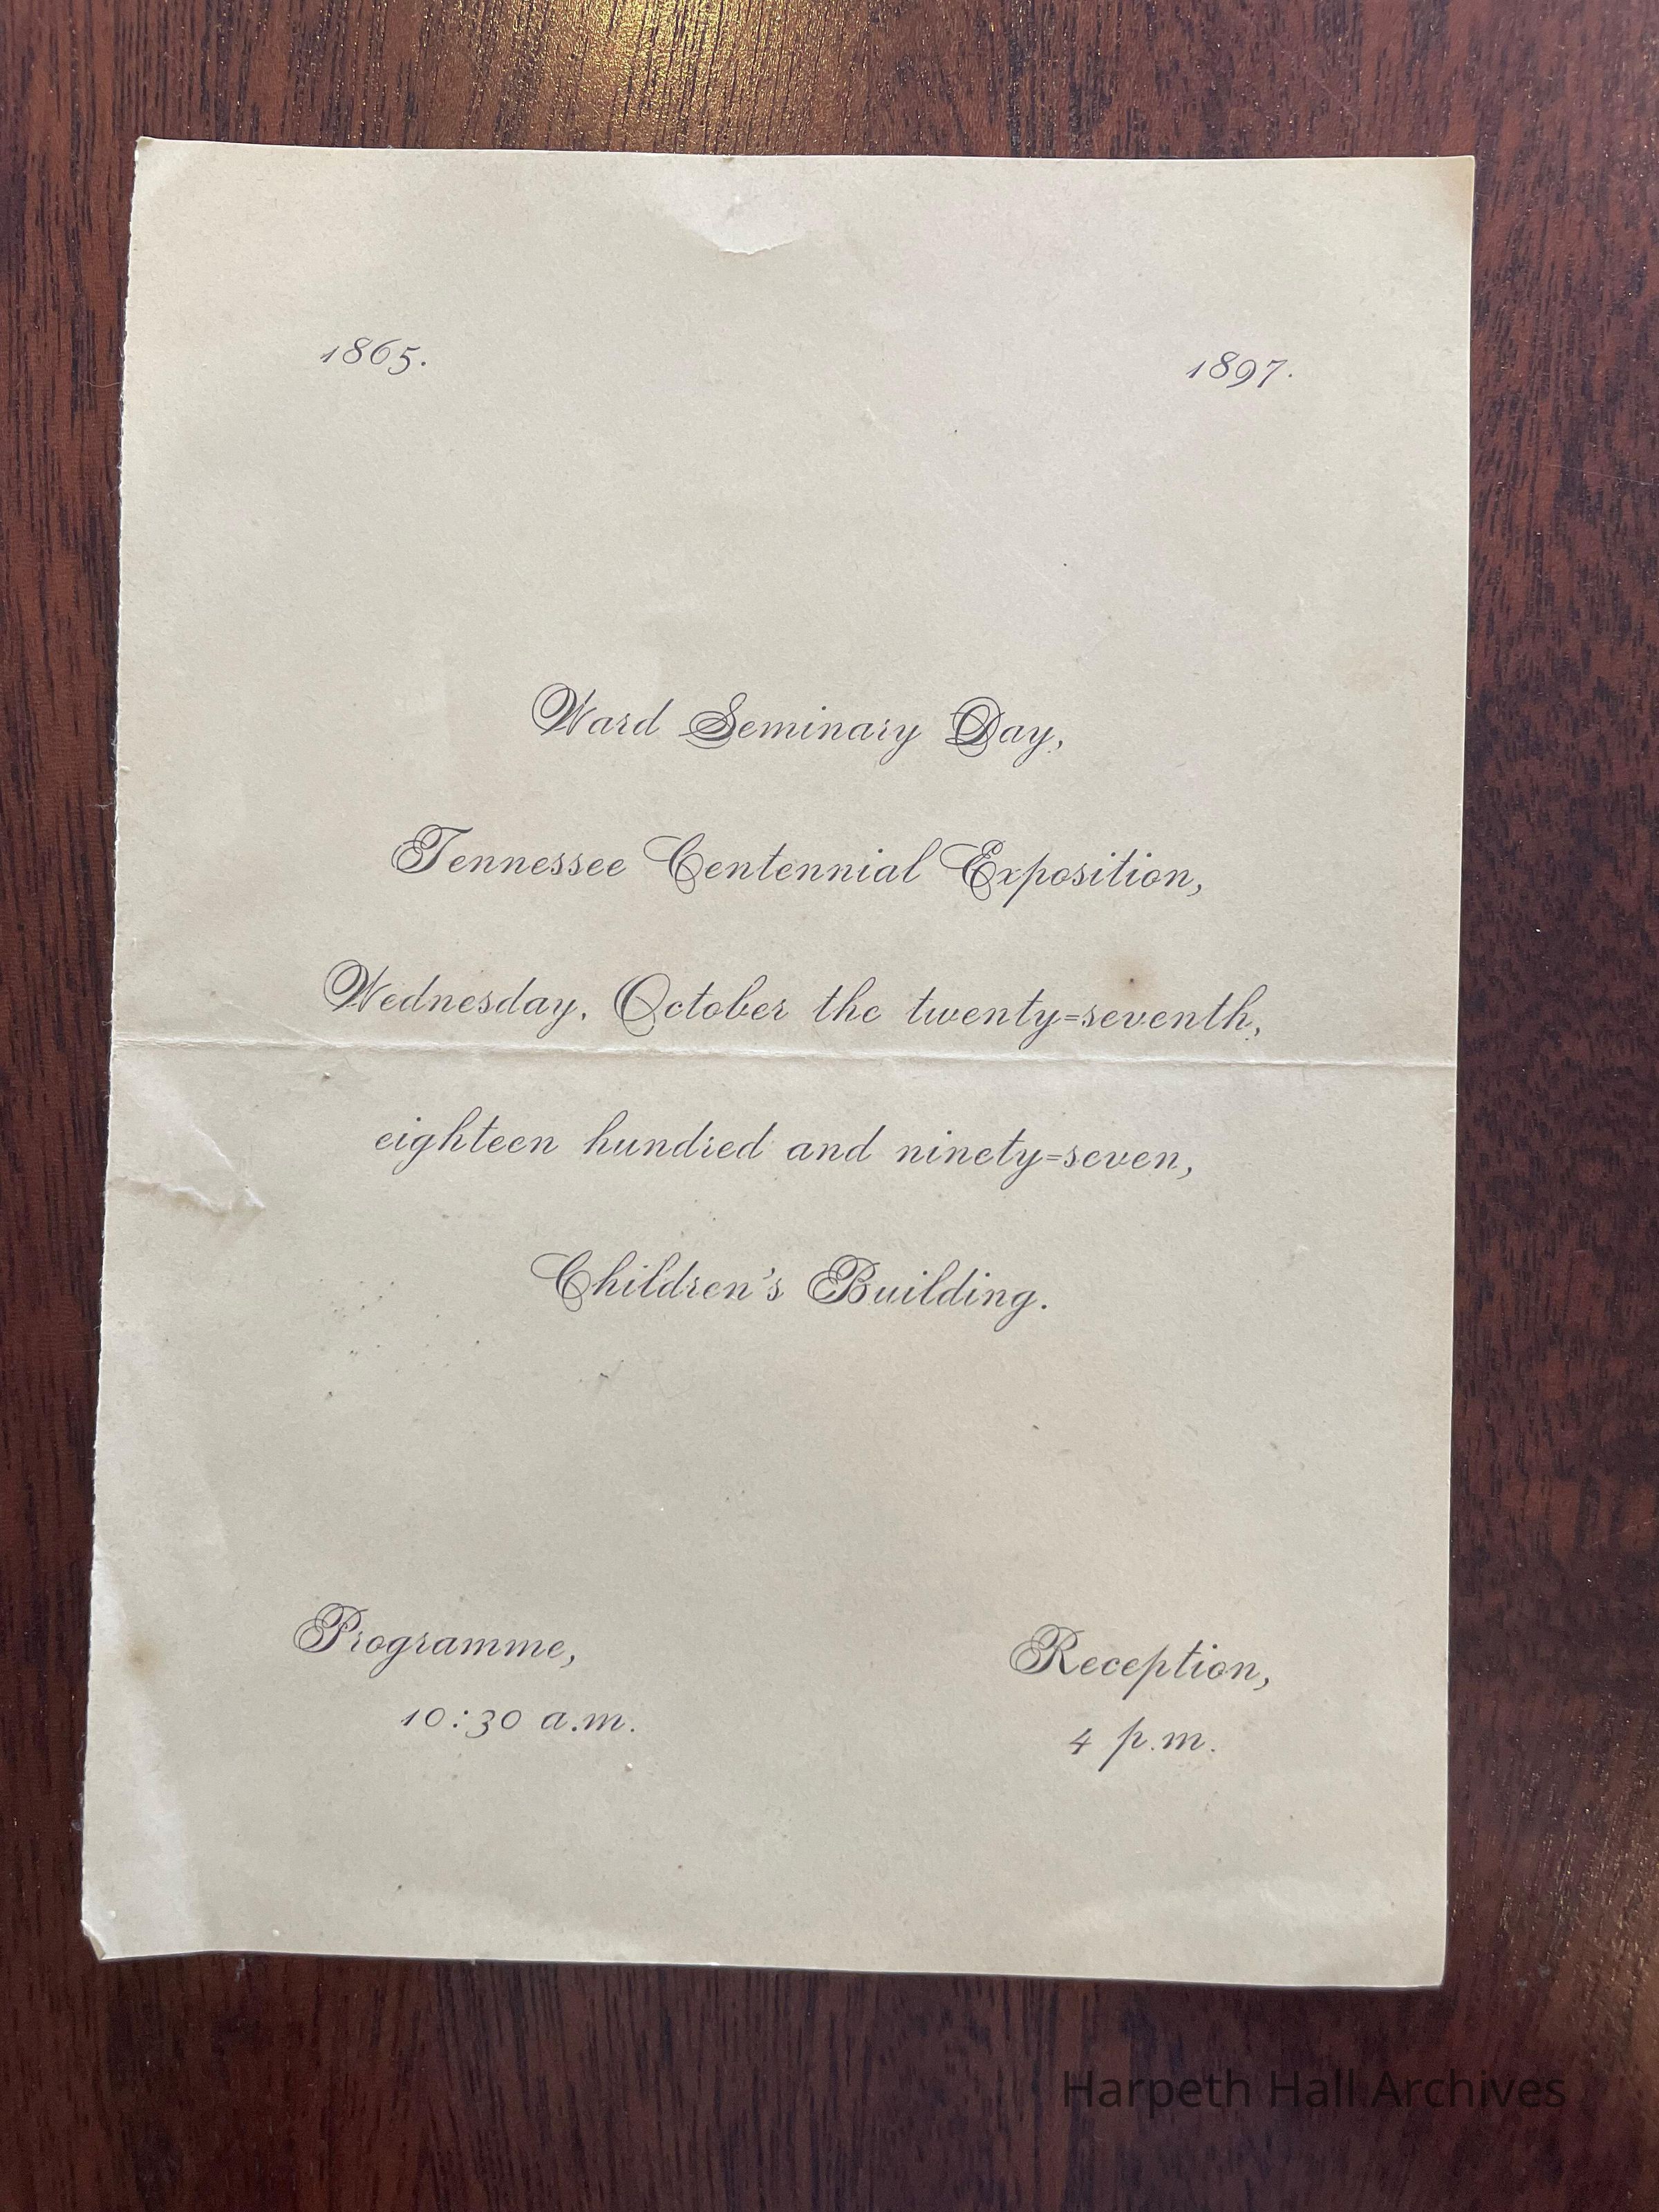 1865. 1897.
Ward Seminary Day,
Tennessee Centennial Exposition,
Wednesday, October the twenty=seventh,
eighteen hundred and ninety=seven,
Children's Building.
Programme, Reception,
10:30 a.m. 4 p.m.
Harpeth Hall Archives